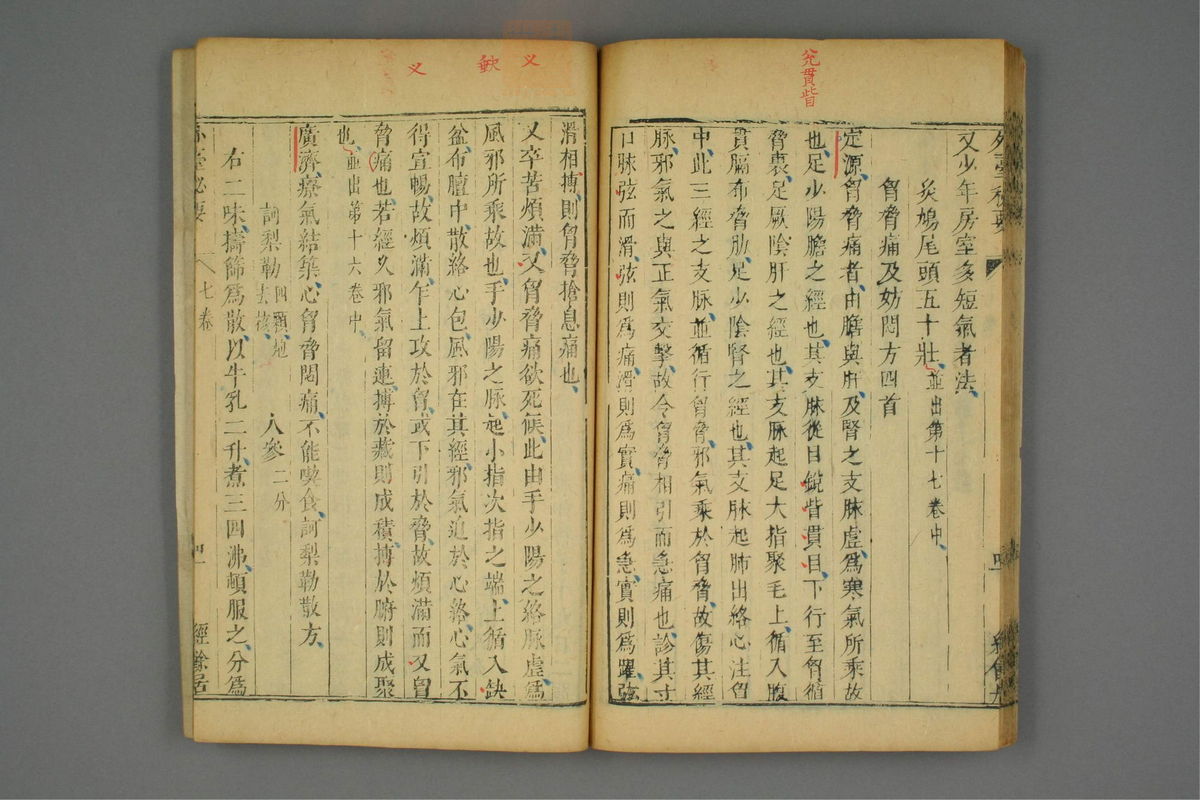 兊貫眥
外臺秘要
又少年房室多短氣者法
灸鳩尾頭五十壯並出第十七卷中
胷脅痛及妨悶方四首
定源胷脅痛者由膽與肝及腎之支脉虛爲寒氣所乘故
也足少陽膽之經也其支脉從目銳眥貫目下行至胷循
脅裏足厥陰肝之經也其支脉起足大指聚毛上循入腹
貫膈布脅肋足少陰腎之經也其支脉起肺出絡心注胷
中此三經之支脉並循行胷脅邪氣乘於胷脅故傷其經
脉邪氣之與正氣交擊故令胷脅相引而急痛也診其寸
口脉弦而滑弦則爲痛滑則爲實痛則爲急實則爲躍弦
又
缺
又
滑相搏則胷脅搶息痛也
又卒苦煩滿又胷脅痛欲死候此由手少陽之絡脉虛爲
風邪所乘故也手少陽之脉起小指次指之端上循入缺
盆布膻中散絡心包風邪在其經邪氣迫於心絡心氣不
得宣暢故煩滿乍上攻於胷或下引於脅故煩滿而又胷
脅痛也若經久邪氣留連搏於藏則成積搏於腑則成聚
也並出第十六卷中
廣濟療氣結築心胷脅悶痛不能喫食訶梨勒散方
訶梨勒四顆炮去核 人參二分
右二味擣篩爲散以牛乳二升煮三四沸頓服之分爲
外臺秘要 七卷 四 經餘居